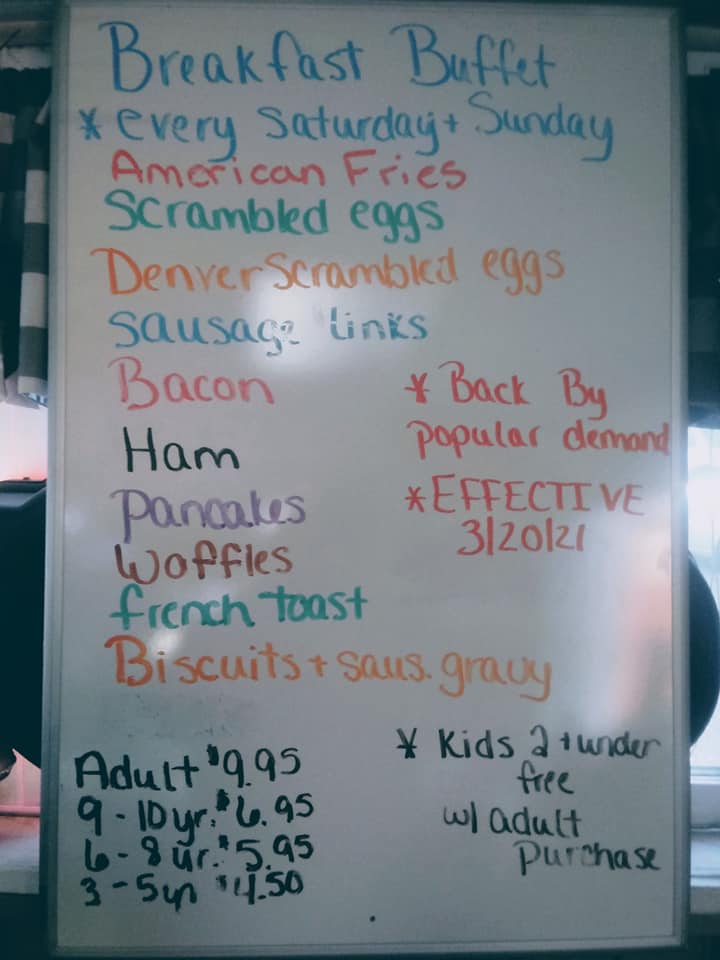 Breakfast Buffet
* every Saturday + Sunday
American Fries
Scrambled eggs
Denver Scrambled eggs
sausage links
Bacon
Ham
pancakes
Waffles
french toast
Biscuits + saus. gravy
* Back By
popular demand
* EFFECTIVE
3/20/21
Adult $9.95
9 - 10 yr. $6.95
6 - 8 yr. $5.95
3 - 5 yr $4.50
* Kids 2 + under
free
w/ adult
purchase